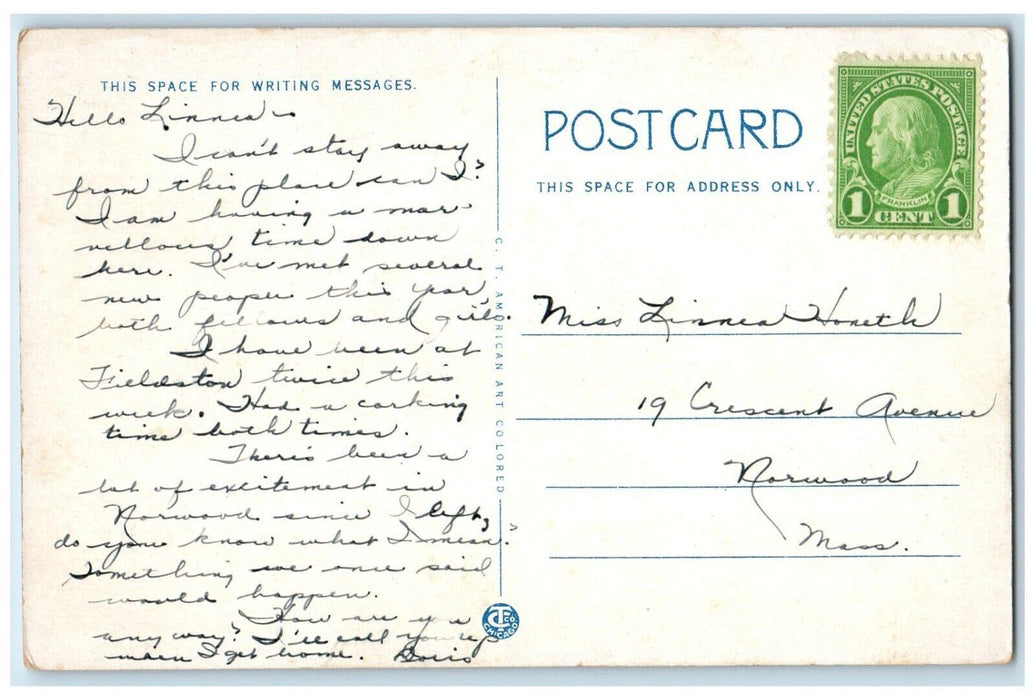 THIS SPACE FOR WRITING MESSAGES.
Hello Linnea -
I can't stay away
from this place can I?
I am having a mar-
vellous time down
here. I've met several
new people this year,
both fellows and girls.
I have been at
Fieldston twice this
week. Had a corking
time both times.
There's been a
lot of excitement in
Norwood since I left,
do you know what I mean.
Something we once said
would happen.
How are you
any way? I'll call you up
when I get home. Doris
C. T. AMERICAN ART COLORED
CT CO. CHICAGO
POST CARD
THIS SPACE FOR ADDRESS ONLY.
UNITED STATES POSTAGE
FRANKLIN
1 CENT 1
Miss Linnea Honeth
19 Crescent Avenue
Norwood
Mass.